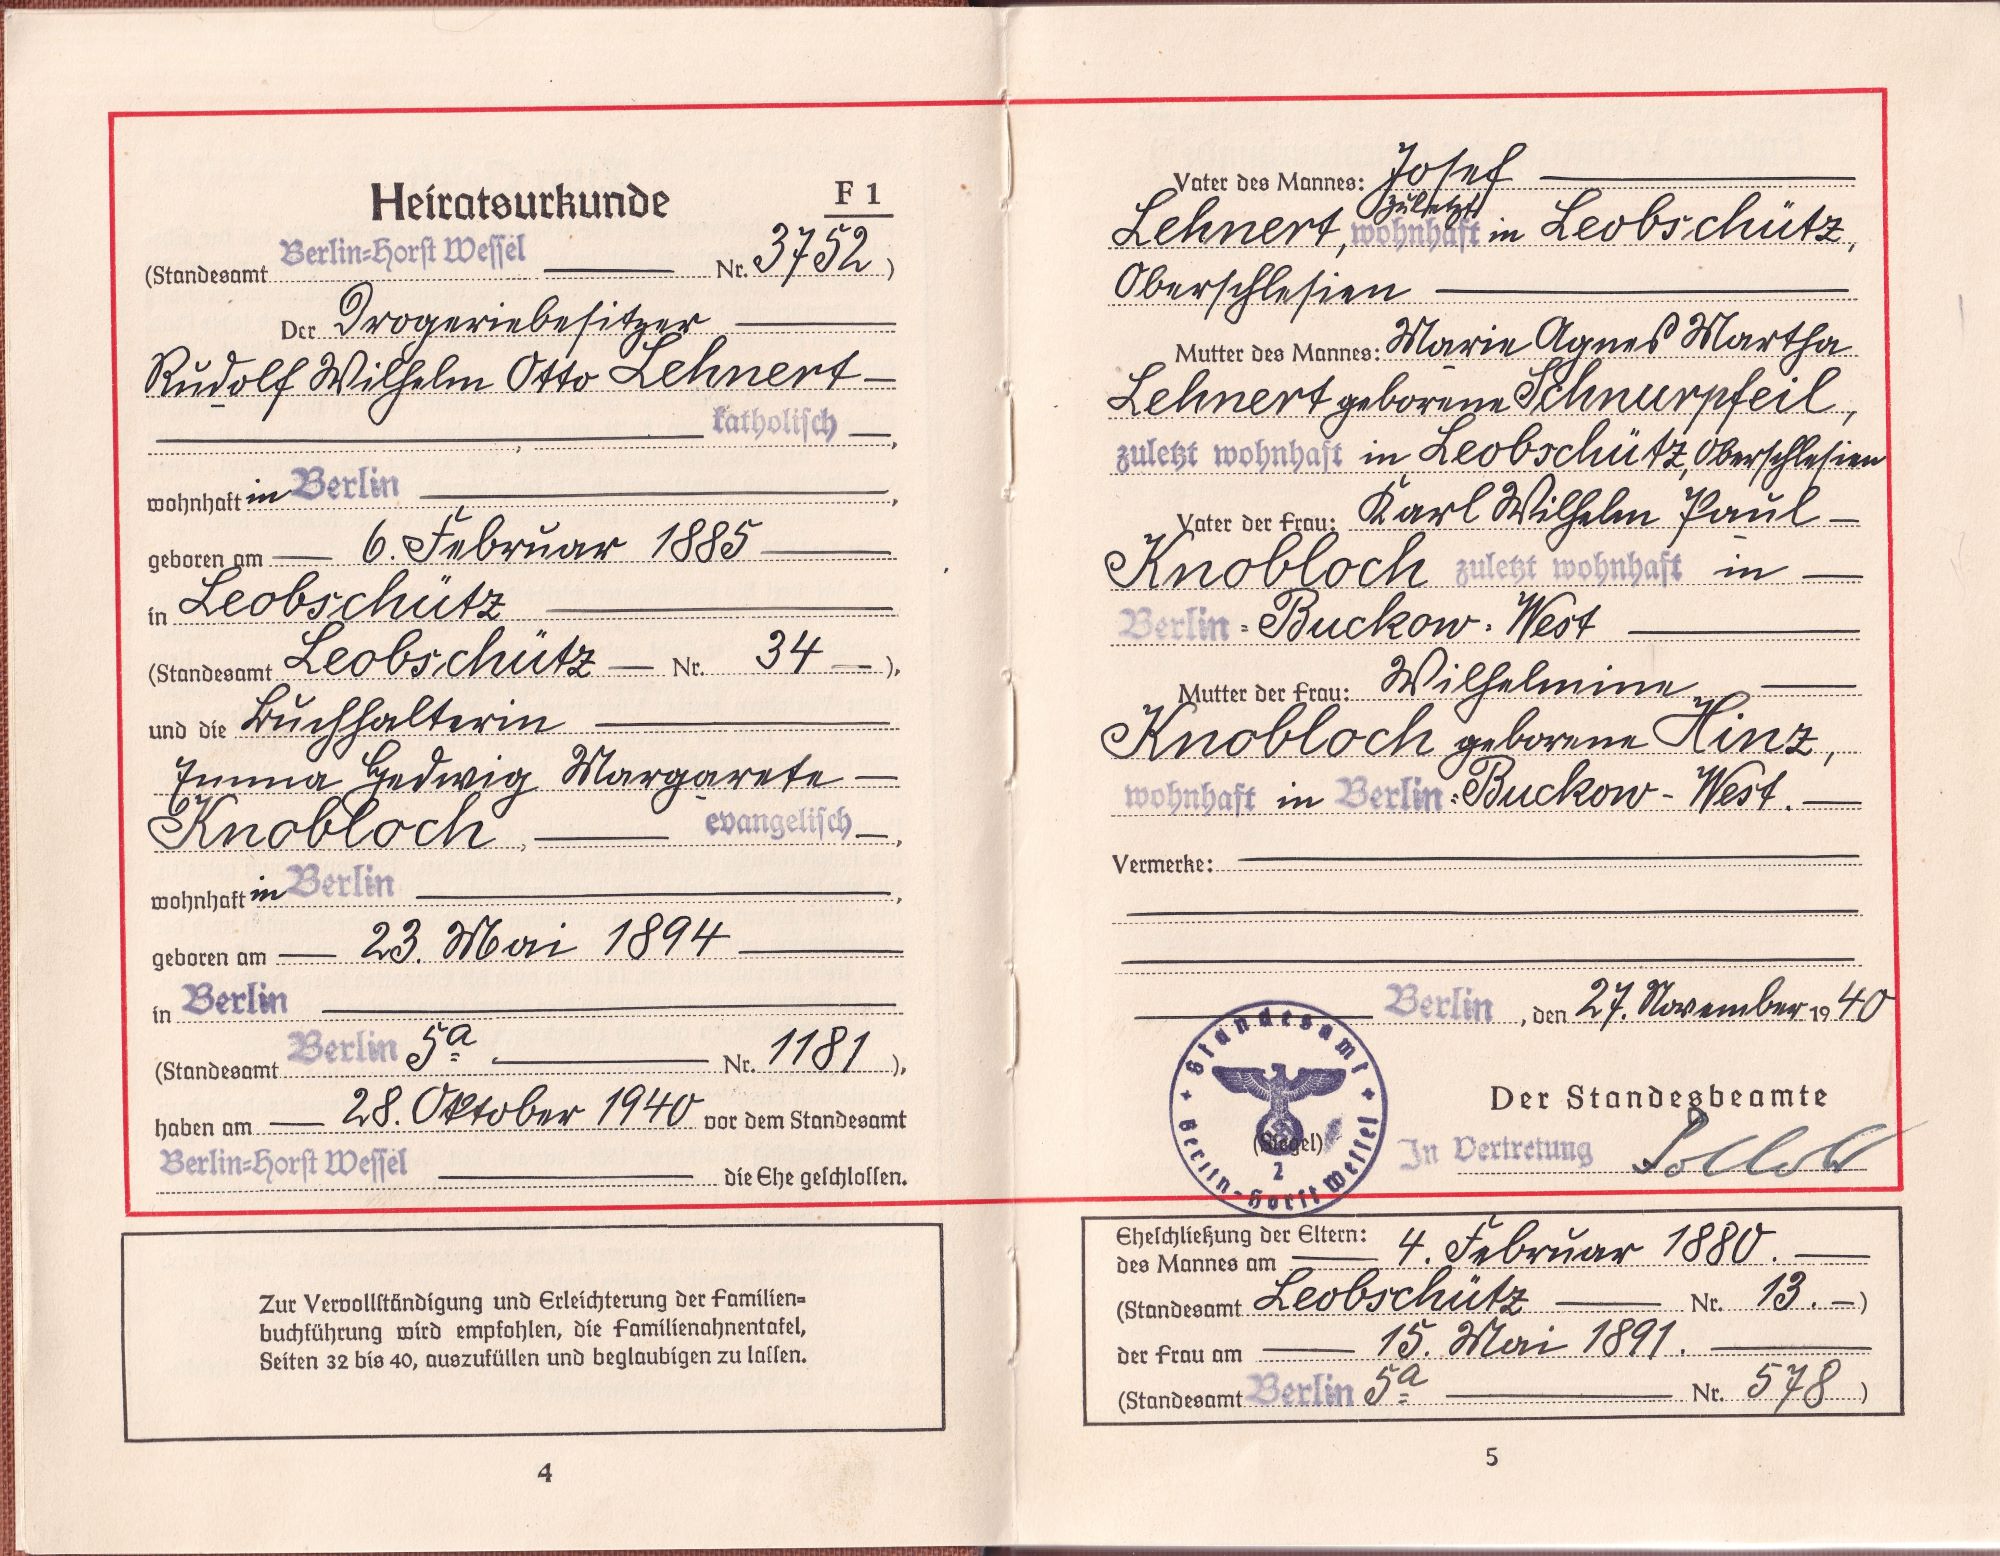 Heiratsurkunde F 1
(Standesamt Berlin=Horst Wessel Nr. 3752)
Der Drogeriebesitzer
Rudolf Wilhelm Otto Lehnert
katholisch,
wohnhaft in Berlin,
geboren am 6. Februar 1885
in Leobschütz
(Standesamt Leobschütz Nr. 34),
und die Buchhalterin
Emma Hedwig Margarete
Knobloch, evangelisch,
wohnhaft in Berlin,
geboren am 23. Mai 1894
in Berlin
(Standesamt Berlin 5a Nr. 1181),
haben am 28. Oktober 1940 vor dem Standesamt
Berlin=Horst Wessel die Ehe geschlossen.
Zur Vervollständigung und Erleichterung der Familien=
buchführung wird empfohlen, die Familienahnentafel,
Seiten 32 bis 40, auszufüllen und beglaubigen zu lassen.
4
Vater des Mannes: Josef
zuletzt
Lehnert, wohnhaft in Leobschütz,
Oberschlesien
Mutter des Mannes: Marie Agnes Martha
Lehnert geborene Schnurpfeil,
zuletzt wohnhaft in Leobschütz, Oberschlesien
Vater der Frau: Karl Wilhelm Paul
Knobloch zuletzt wohnhaft in
Berlin=Buckow-West
Mutter der Frau: Wilhelmine
Knobloch geborene Hinz,
wohnhaft in Berlin=Buckow-West.
Vermerke:
Berlin, den 27. November 1940
Standesamt
Berlin-Horst Wessel
(Siegel)
2
Der Standesbeamte
In Vertretung
Eheschließung der Eltern:
des Mannes am 4. Februar 1880.
(Standesamt Leobschütz Nr. 13.)
der Frau am 15. Mai 1891.
(Standesamt Berlin 5a Nr. 578)
5